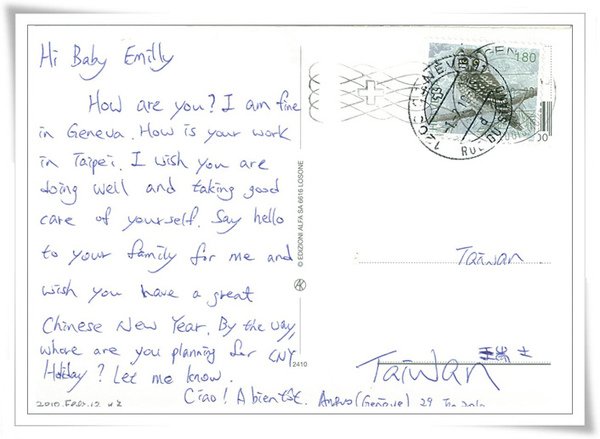 Hi Baby Emilly
How are you? I am fine
in Geneva. How is your work
in Taipei. I wish you are
doing well and taking good
care of yourself. Say hello
to your family for me and
wish you have a great
Chinese New Year. By the way,
where are you planning for CNY
Holiday? Let me know.
Ciao! A bientôt.
(Genève) 29
2010
© EDIZIONI ALFA SA 6616 LOSONE
2410
180
1202 GENÈVE
RUE DU
Taiwan
瑞士
Taiwan